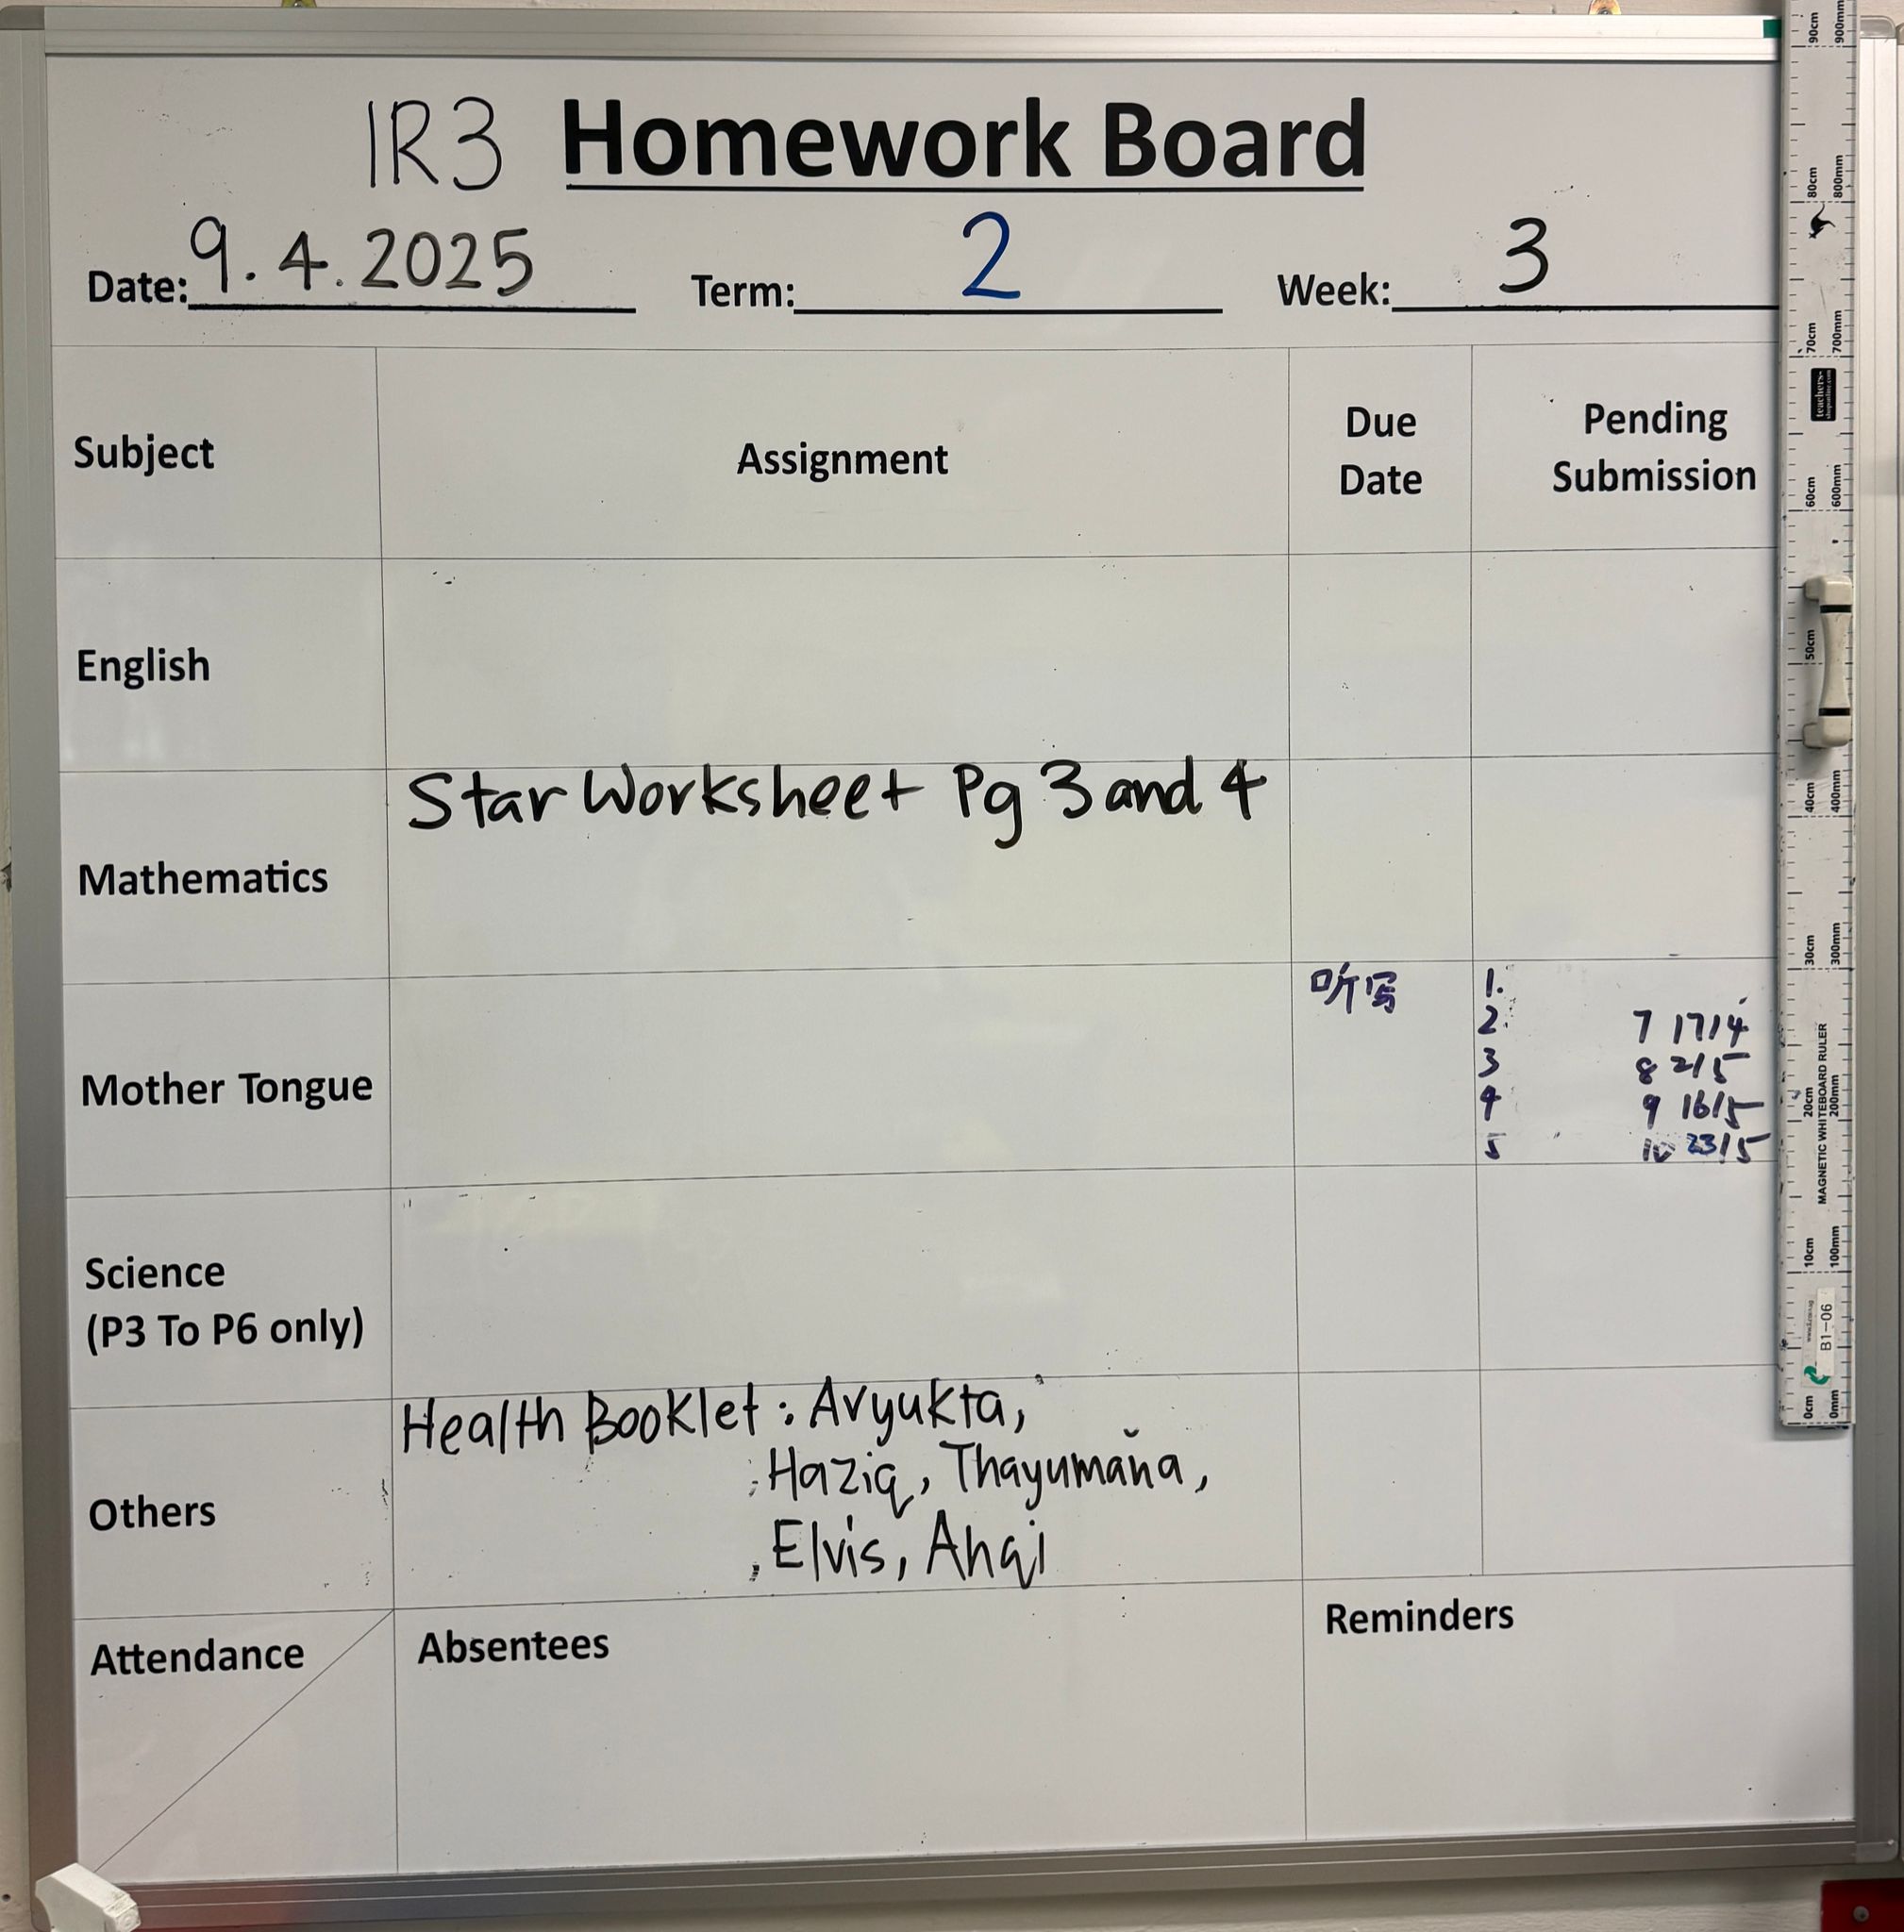 1R3 Homework Board
Date: 9.4.2025 Term: 2 Week: 3
Subject Assignment Due Date Pending Submission
English
Mathematics Star Worksheet Pg 3 and 4
Mother Tongue 听写
1.
2. 7 17/4
3 8 2/5
4 9 16/5
5 10 23/5
Science
(P3 To P6 only)
Others
Health Booklet: Avyukta,
Haziq, Thayumana,
Elvis, Ahqi
Attendance Absentees Reminders
90cm 900mm
80cm 800mm
70cm 700mm
teachers-
60cm 600mm
50cm
40cm 400mm
30cm 300mm
20cm 200mm
MAGNETIC WHITEBOARD RULER
10cm 100mm
B1-06
0cm 0mm